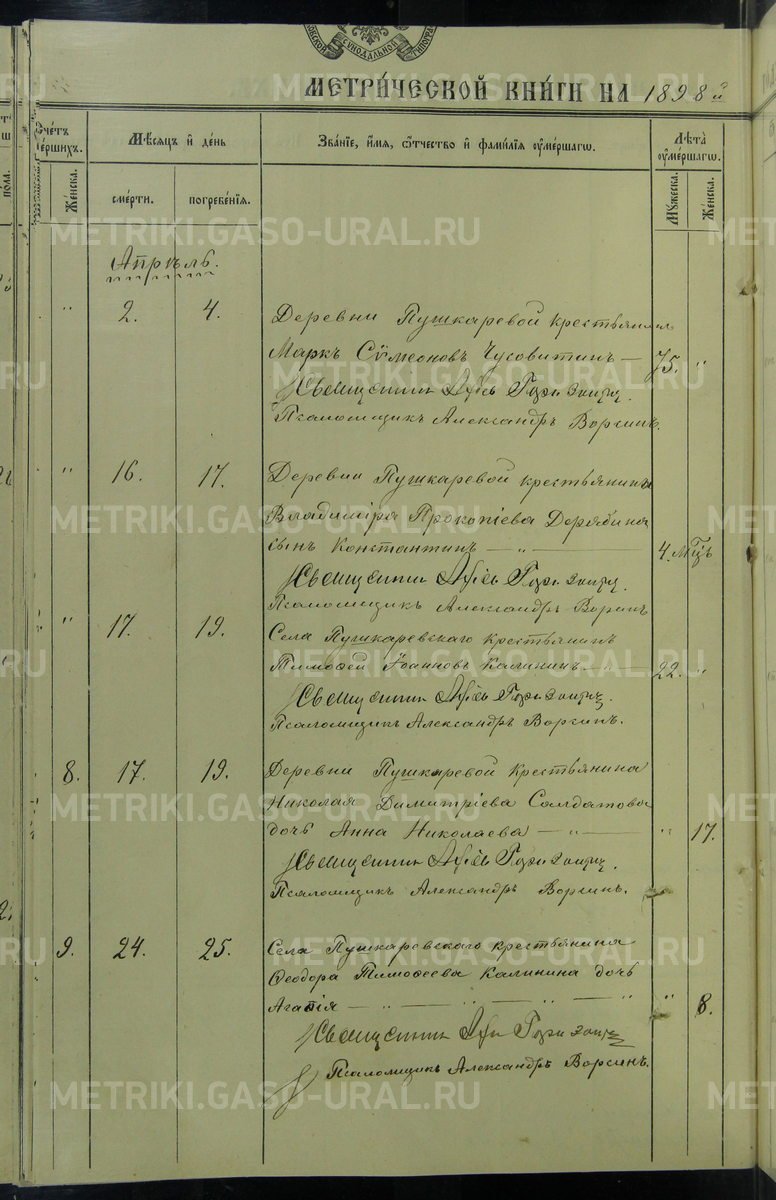 МЕТРИЧЕСКОЙ КНИГИ НА 1898 й
Счетъ умершихъ. Мѣсяцъ и день Званіе, имя, отчество и фамилія умершаго. Лѣта умершаго.
Женска. смерти. погребенія. Мужеска. Женска.
Апрѣль.
" 2. 4. Деревни Пушкаревой крестьянинъ
Маркъ Сѵмеоновъ Чусовитинъ — 75. "
Священникъ
Псаломщикъ Александръ Ворсинъ.
" 16. 17. Деревни Пушкаревой крестьянина
Владиміра Прокопіева Дерябина
сынъ Константинъ — " — 4. мѣц
Священникъ
Псаломщикъ Александръ Ворсинъ
" 17. 19. Села Пушкаревскаго крестьянинъ
Тимоѳей Іоанновъ Калининъ — " — 22. "
Священникъ
Псаломщикъ Александръ Ворсинъ.
8. 17. 19. Деревни Пушкаревой крестьянина
Николая Димитріева Солдатова
дочь Анна Николаева — " — " 17.
Священникъ
Псаломщикъ Александръ Ворсинъ.
9. 24. 25. Села Пушкаревскаго крестьянина
Ѳеодора Тимоѳеева Калинина дочь
Агаѳія — " — " — " — " " 8.
Священникъ
Псаломщикъ Александръ Ворсинъ.
METRIKI.GASO-URAL.RU